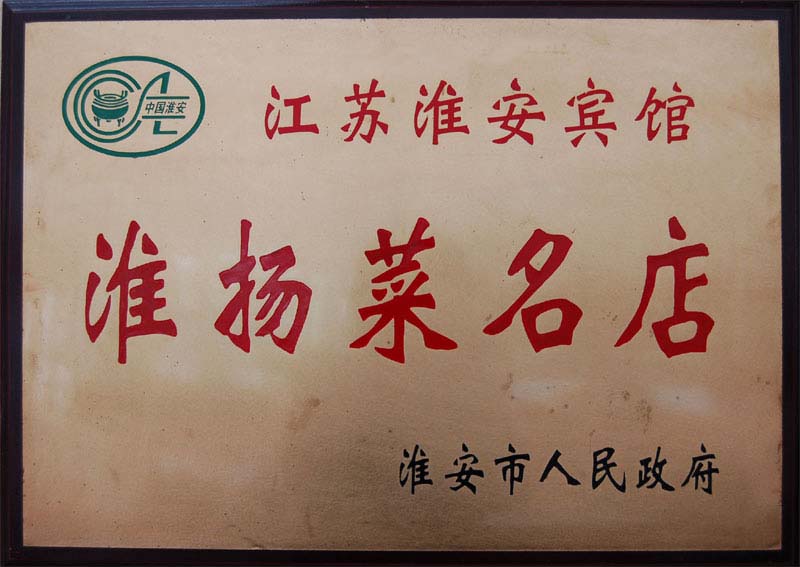 中国淮安
江苏淮安宾馆
淮扬菜名店
淮安市人民政府